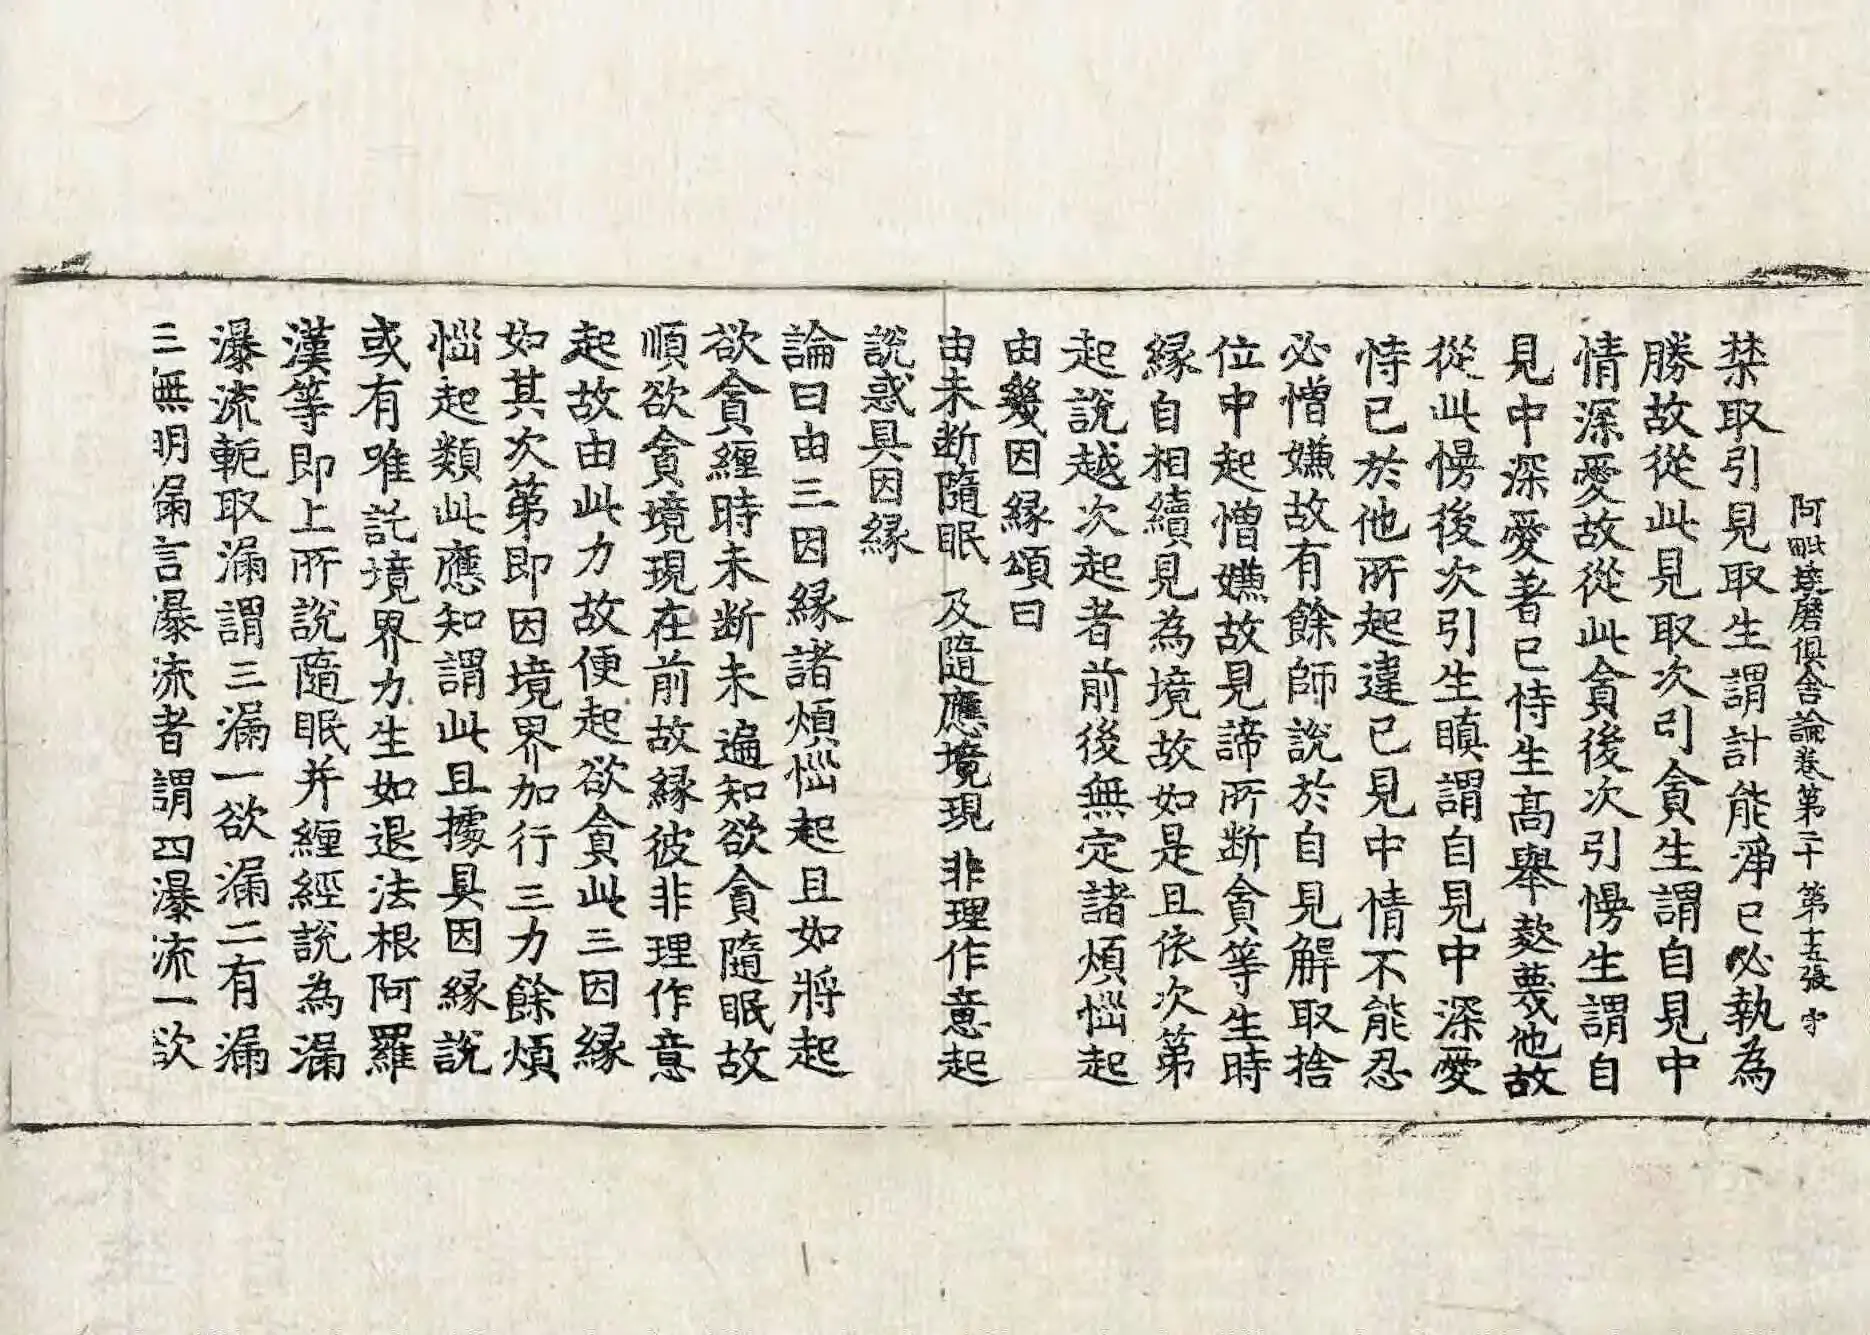 阿毗達磨俱舍論卷第二十 第十五張 宇
禁取引見取生謂計能淨已必執為
勝故從此見取次引貪生謂自見中
情深愛故從此貪後次引慢生謂自
見中深愛著已恃生高舉㪍蔑他故
從此慢後次引生瞋謂自見中深愛
恃已於他所起違已見中情不能忍
必憎嫌故有餘師說於自見解取捨
位中起憎嫌故見諦所断貪等生時
緣自相續見為境故如是且依次第
起說越次起者前後無定諸煩惱起
由幾因緣頌曰
由未断隨眠 及隨應境現 非理作意起
說惑具因緣
論曰由三因緣諸煩惱起且如將起
欲貪纏時未断未遍知欲貪隨眠故
順欲貪境現在前故緣彼非理作意
起故由此力故便起欲貪此三因緣
如其次第即因境界加行三力餘煩
惱起類此應知謂此且據具因緣說
或有唯託境界力生如退法根阿羅
漢等即上所說隨眠并纏經說為漏
瀑流軛取漏謂三漏一欲漏二有漏
三無明漏言瀑流者謂四瀑流一欲